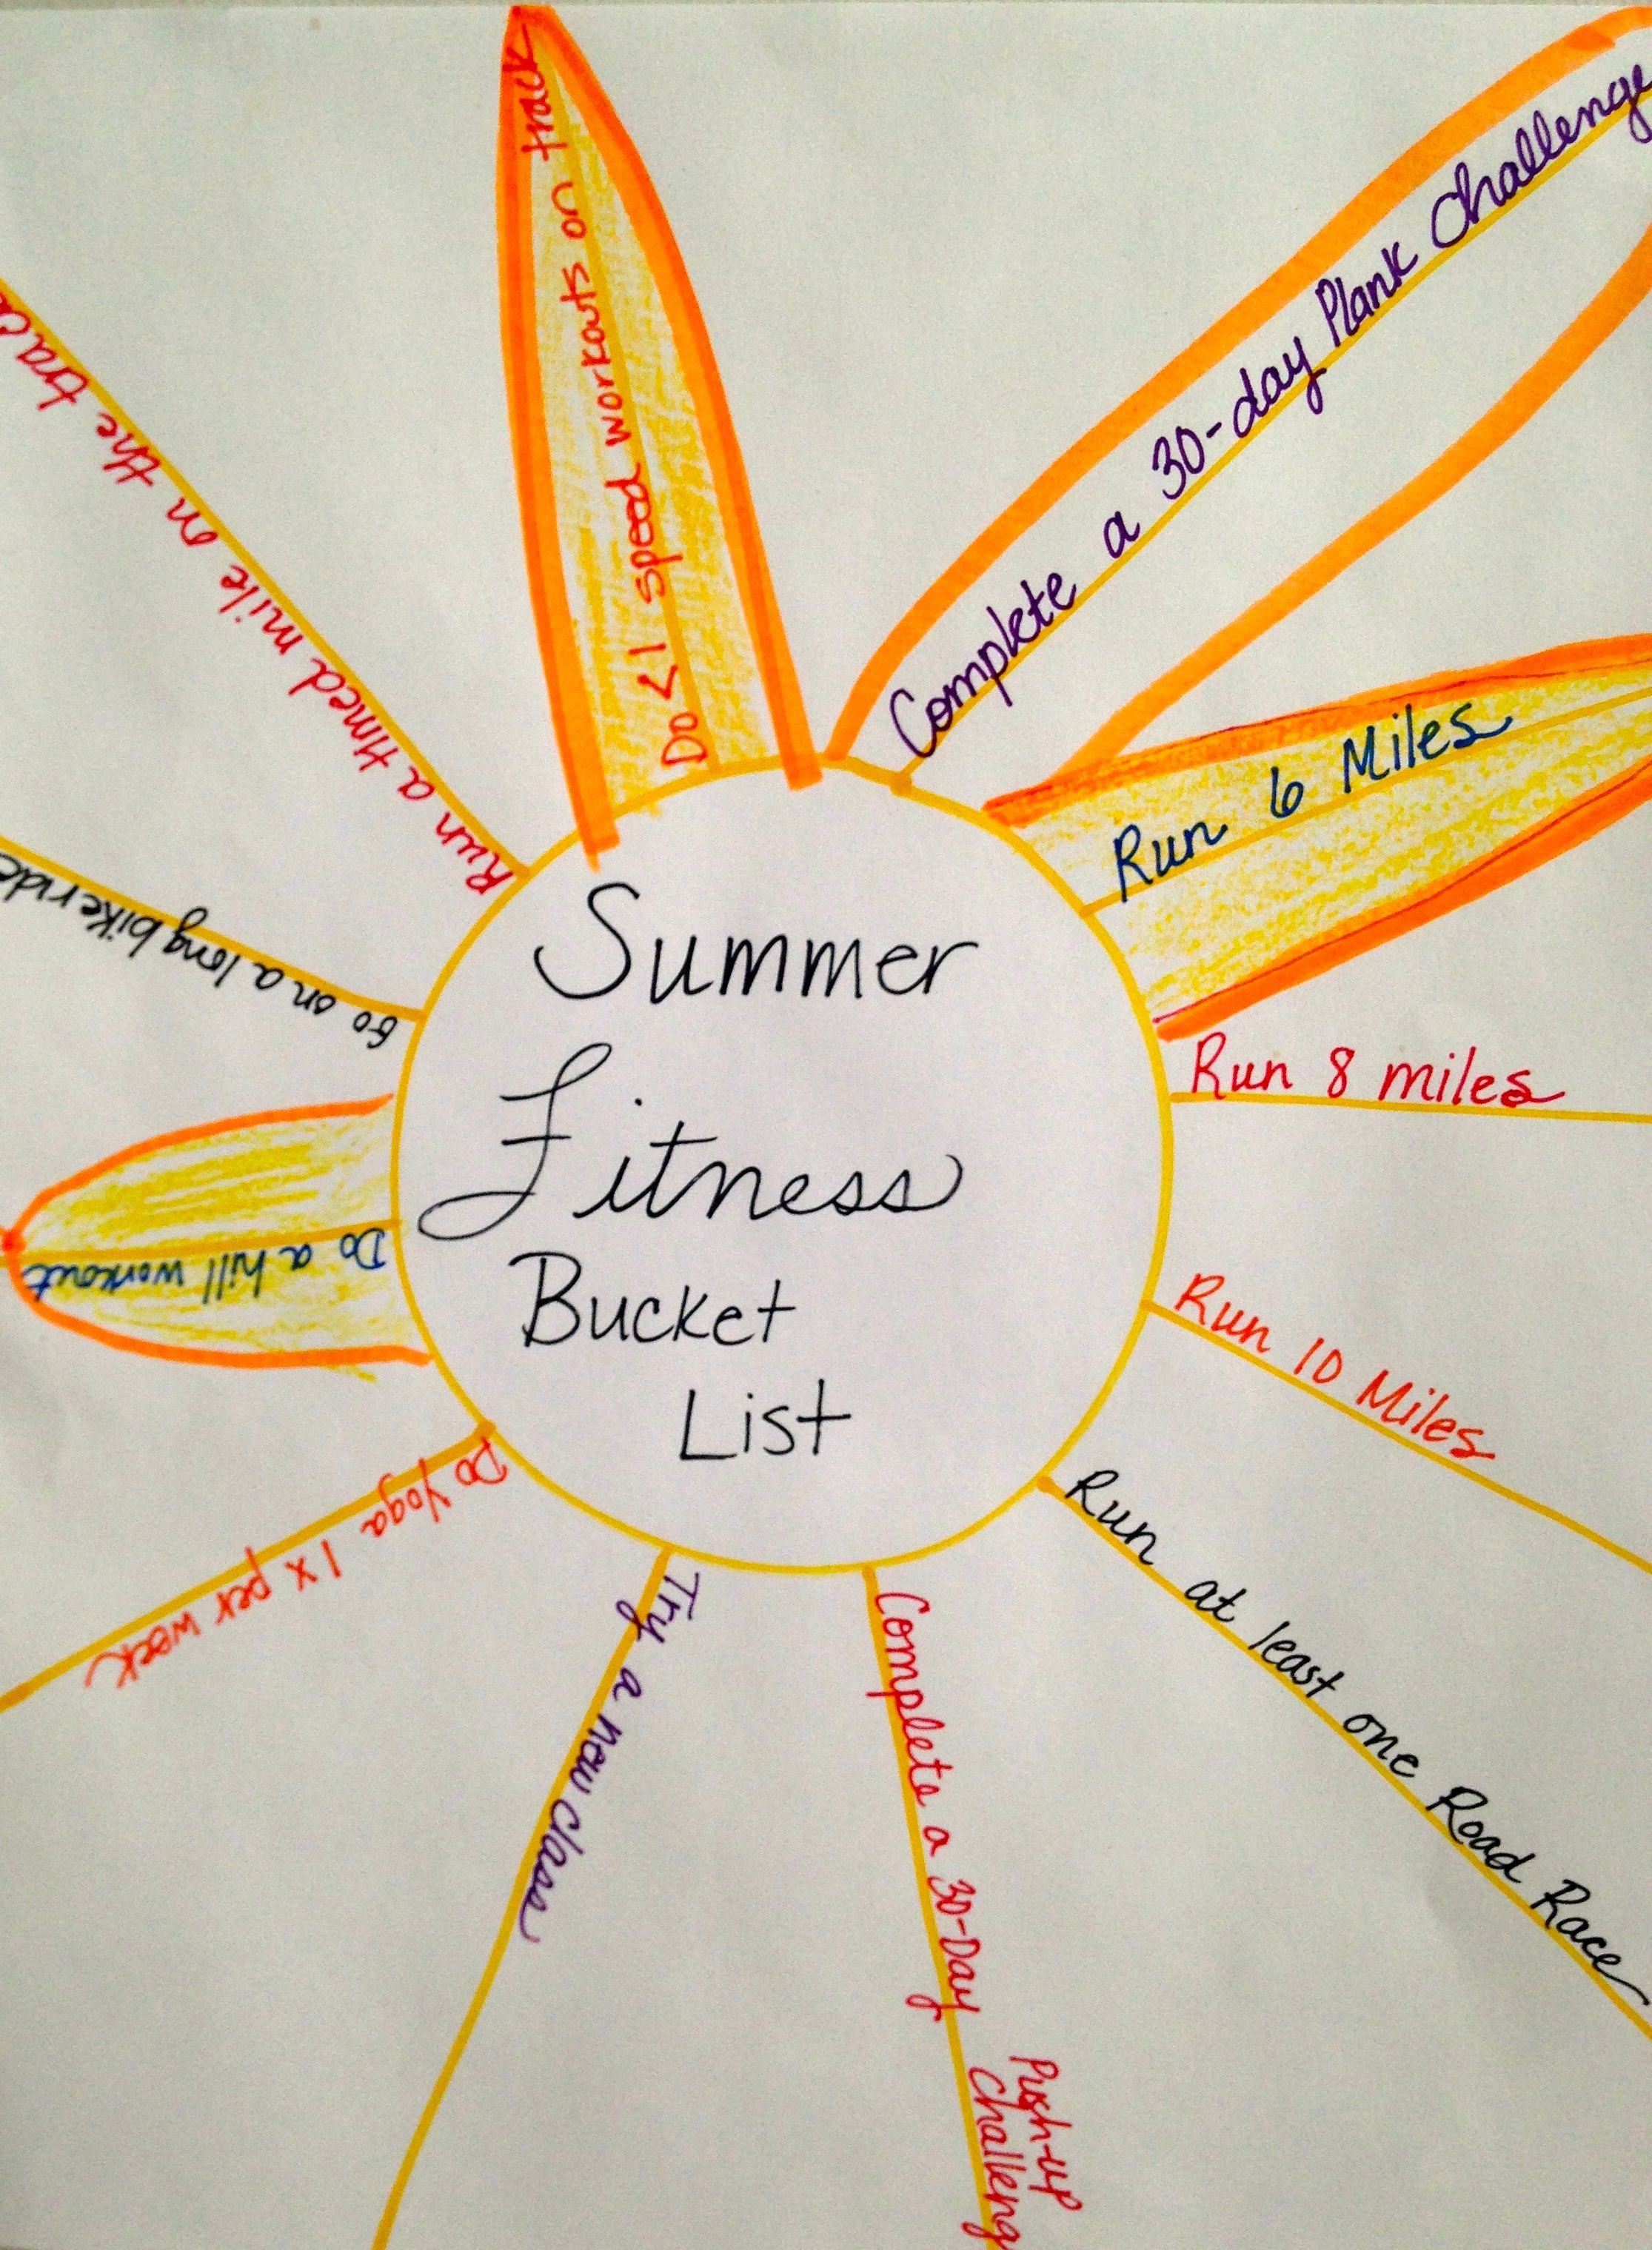 Summer
Fitness
Bucket
List
Do <1 speed workouts on track
Complete a 30-day Plank Challenge
Run 6 Miles
Run 8 miles
Run 10 Miles
Run at least one Road Race
Complete a 30-Day
Push-up
Challeng
Try a new class
Do Yoga 1x per week
Do a hill workout
Go on a long bike ride
Run a timed mile on the